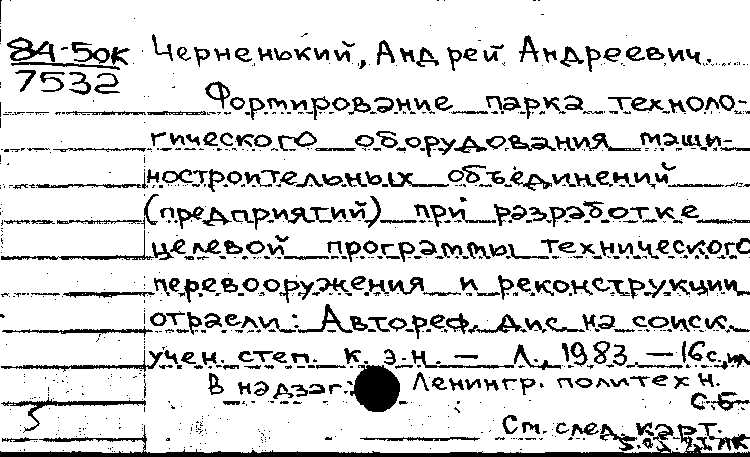 84-5ок
7532
Черненький, Андрей Андреевич.
Формирование парка техноло-
гического оборудования маши-
ностроительных объединений
(предприятий) при разработке
целевой программы технического
перевооружения и реконструкции
отрасли: Автореф. дис. на соиск.
учен. степ. к. э. н. — Л., 1983. — 16 с.
В надзаг.: Ленингр. политехн.
С. Б
См. след. карт.
5